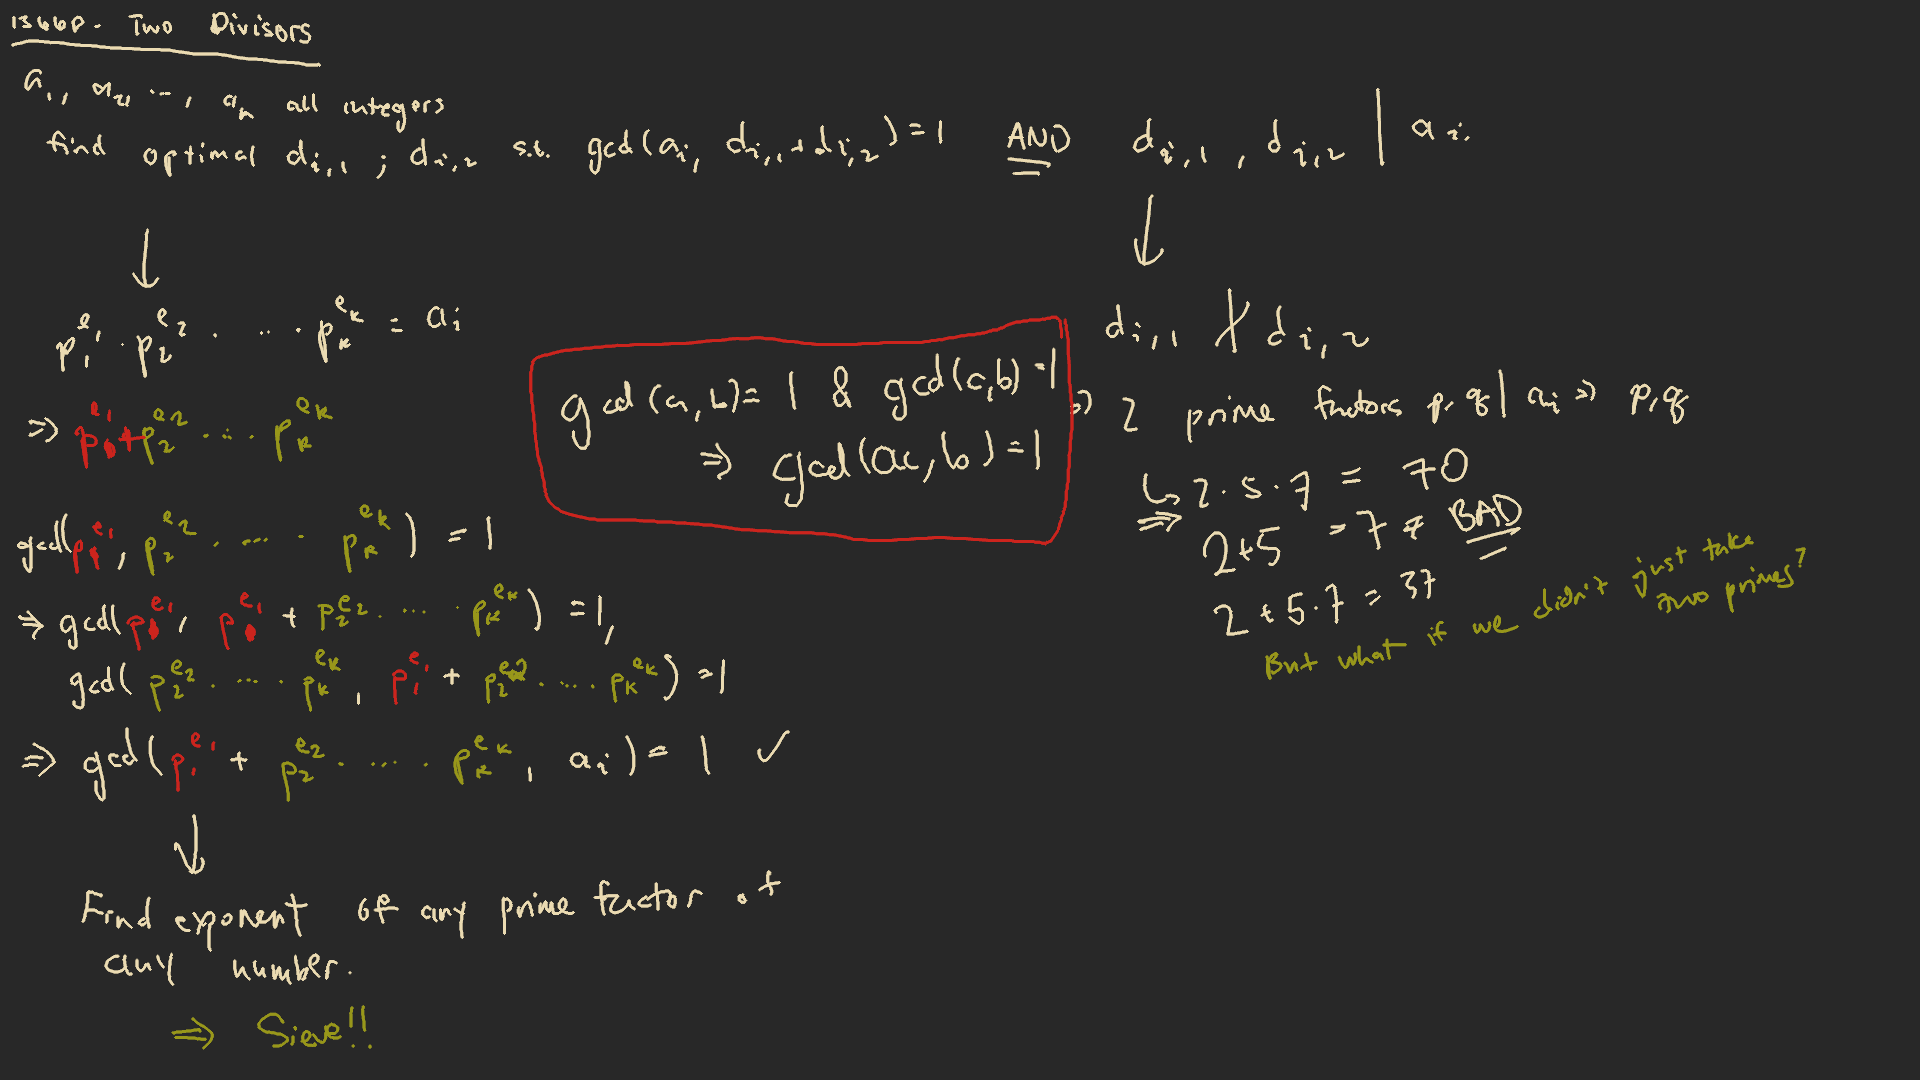 1366D. Two Divisors
a₁, a₂, ..., aₙ all integers
find optimal d_{i,1} ; d_{i,2} s.t. gcd(a_i, d_{i,1} + d_{i,2}) = 1 AND d_{i,1}, d_{i,2} | a_i.
↓
p₁^{e₁} · p₂^{e₂} · ... · p_k^{e_k} = a_i
⇒ p₁^{e₁} + p₂^{e₂} ... p_k^{e_k}
gcd(p₁^{e₁}, p₂^{e₂} · ... · p_k^{e_k}) = 1
⇒ gcd(p₁^{e₁}, p₁^{e₁} + p₂^{e₂} · ... · p_k^{e_k}) = 1,
gcd(p₂^{e₂} · ... · p_k^{e_k}, p₁^{e₁} + p₂^{e₂} · ... · p_k^{e_k}) = 1
⇒ gcd(p₁^{e₁} + p₂^{e₂} · ... · p_k^{e_k}, a_i) = 1 ✓
↓
Find exponent of any prime factor of
any number.
⇒ Sieve!!
gcd(a,b) = 1 & gcd(c,b) = 1
⇒ gcd(ac, b) = 1
↓
d_{i,1} ∤ d_{i,2}
⇒ 2 prime factors p, q | a_i ⇒ p, q
↳ 2 · 5 · 7 = 70
⇒ 2+5 = 7 ← BAD
2 + 5·7 = 37
But what if we didn't just take
two primes?